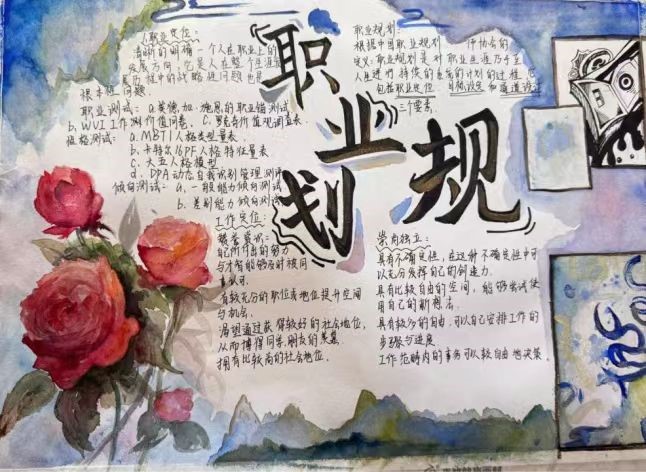 职业规划
人职业定位:
清晰的明确一个人在职业上的
发展方向,它是人在整个生涯发
展历程中的战略性问题也是
根本性问题
职业测试: a.英德.加.施恩的职业锚测试
b.WVI工作测价值问卷. C.罗克奇价值观调查表.
性格测试: a.MBTI人格类型量表.
b.卡特尔16PF人格特征量表
c.大五人格模型
d.DPA动态自我识别管理测评
倾向测试: a.一般能力倾向测试
b.差别能力倾向测试
职业规划:
根据中国职业规划 师协会的
定义:职业规划是对职业生涯乃至
人生进行持续的系统的计划的过程,它
包括职业定位.目标设定和通道设计
三个要素.
工作定位:
赞誉赏识:
自己所付出的努力
与才智能够及时被同
事认可.
有较充分的职位或地位提升空间
与机会.
渴望通过获得较好的社会地位,
从而博得同学朋友的羡慕
拥有比较高的社会地位.
崇尚独立:
具有不确定性,在这种不确定性中可
以充分发挥自己的创造力.
具有比较自由的空间,能够尝试使
用自己的新想法.
具有较多的自由,可以自主安排工作的
步骤与进展
工作范畴内的事务可以较自由地决策.